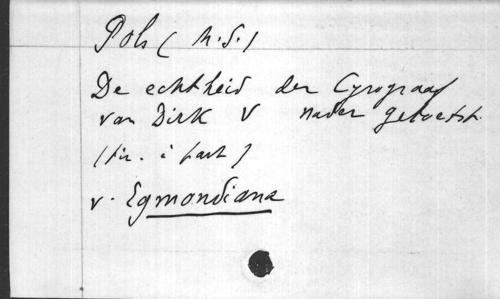 Pols ( M.S. )
De echtheid der Cyrograaf
van Dirk V nader getoetst.
( tir. à part )
v. Egmondiana